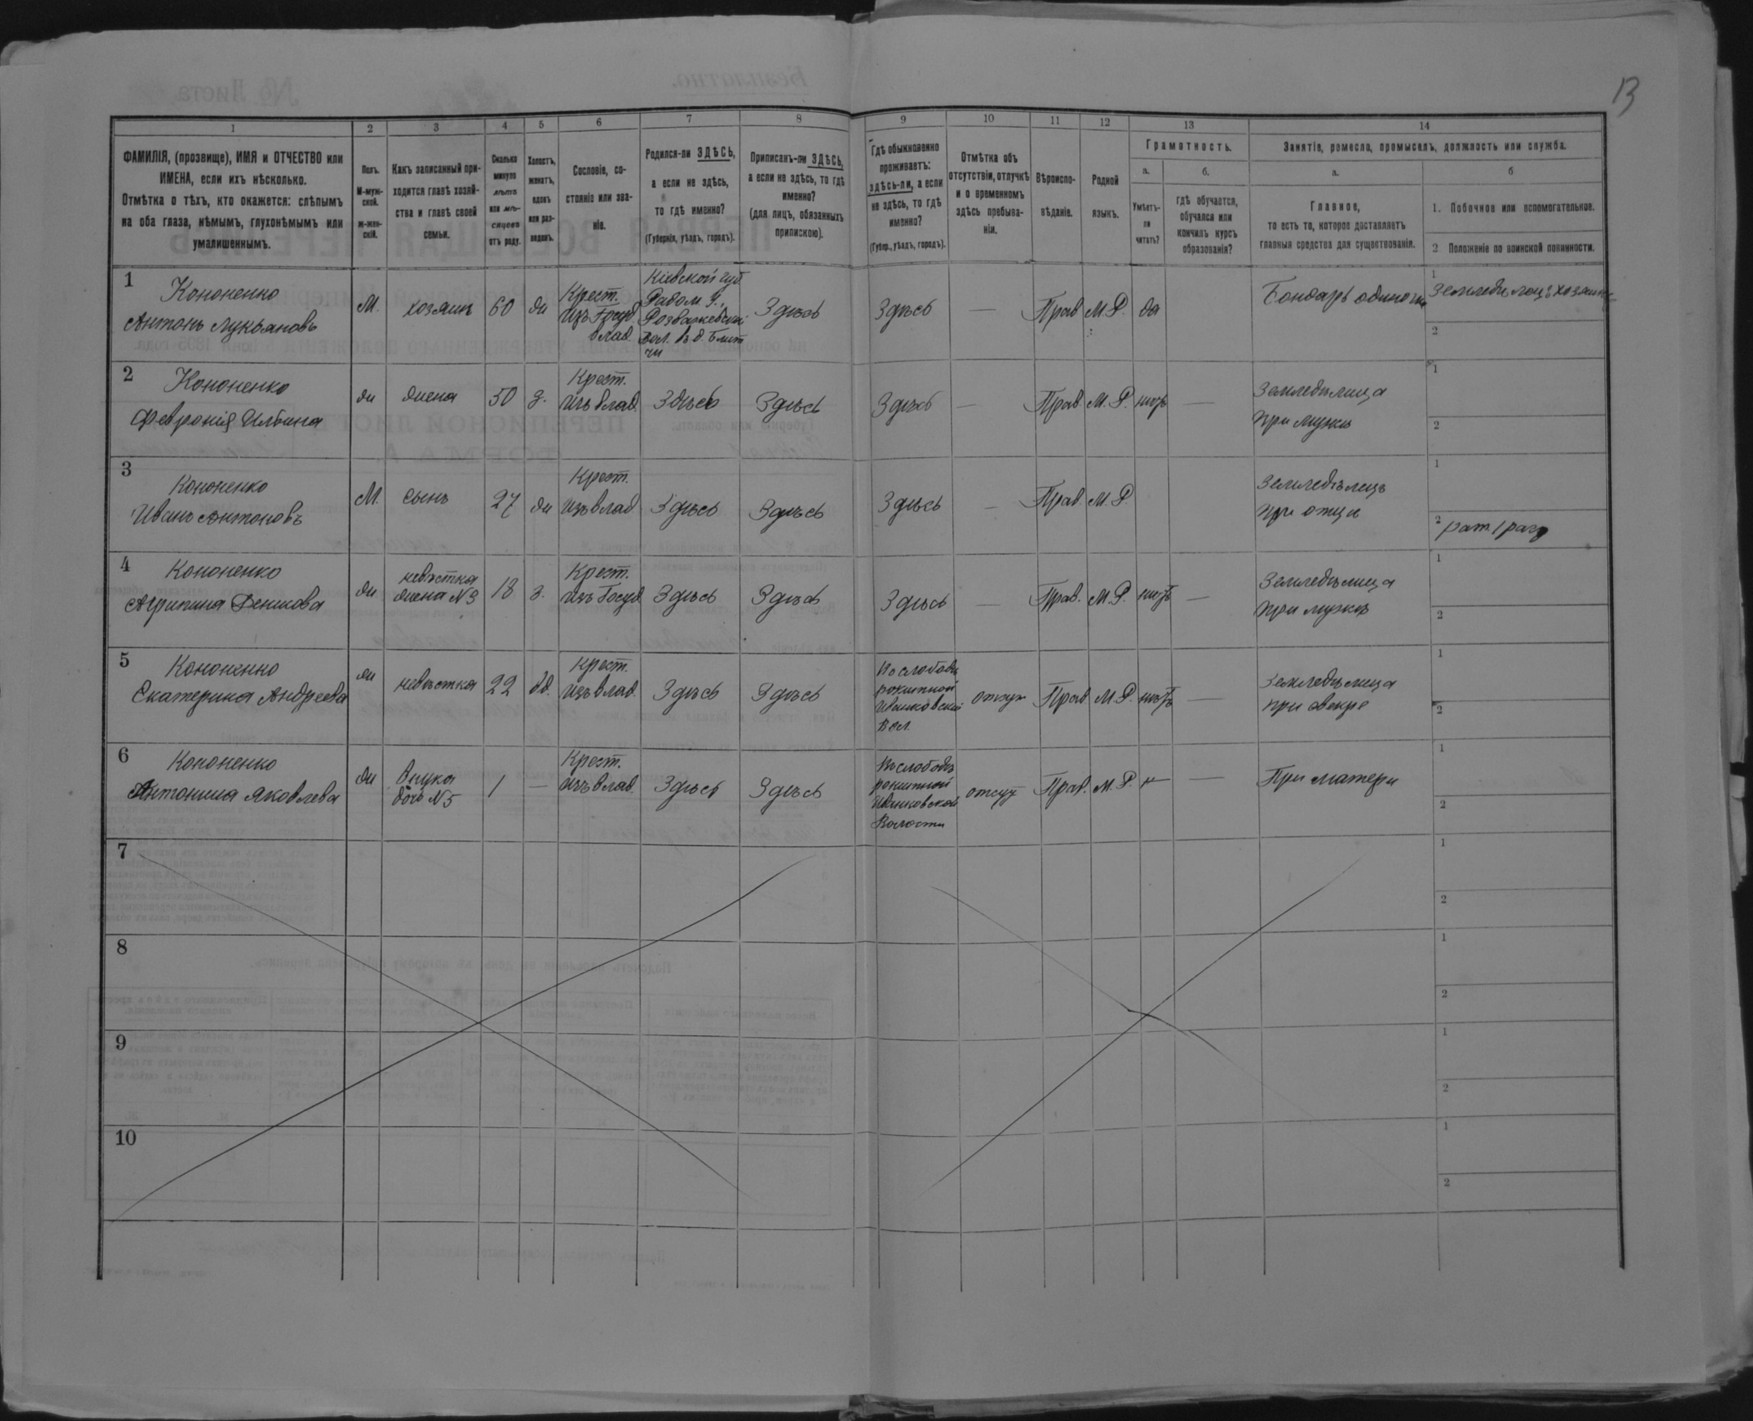 13
1 2 3 4 5 6 7 8 9 10 11 12 13 14
ФАМИЛІЯ, (прозвище), ИМЯ и ОТЧЕСТВО или ИМЕНА, если ихъ нѣсколько.
Отмѣтка о тѣхъ, кто окажется: слѣпымъ на оба глаза, нѣмымъ, глухонѣмымъ или умалишеннымъ.
Полъ. М-муж-ской. Ж-жен-скій.
Какъ записанный при-ходится главѣ хозяй-ства и главѣ своей семьи.
Сколько минуло лѣтъ или мѣ-сяцевъ отъ роду.
Холостъ, женатъ, вдовъ или раз-веденъ.
Сословіе, со-стояніе или зва-ніе.
Родился-ли ЗДѢСЬ, а если не здѣсь, то гдѣ именно? (Губернія, уѣздъ, городъ).
Приписанъ-ли ЗДѢСЬ, а если не здѣсь, то гдѣ именно? (для лицъ, обязанныхъ припискою).
Гдѣ обыкновенно проживаетъ: здѣсь-ли, а если не здѣсь, то гдѣ именно? (Губер., уѣздъ, городъ).
Отмѣтка объ отсутствіи, отлучкѣ и о временномъ здѣсь пребыва-ніи.
Вѣроиспо-вѣданіе.
Родной языкъ.
Грамотность.
а. Умѣетъ-ли читать?
б. гдѣ обучается, обучался или кончилъ курсъ образованія?
Занятіе, ремесло, промыселъ, должность или служба.
а. Главное, то есть то, которое доставляетъ главныя средства для существованія.
б
1. Побочное или вспомогательное.
2 Положеніе по воинской повинности.
1 Кононенко Антонъ Лукьяновъ М. хозяинъ 60 ж Крест. изъ Госуд. влад. Кіевской губ Радом. у. Розважевск. вол. въ д. Здѣсь Здѣсь — Прав М.Р. да Бондарь одиночка 1 Земледѣлецъ хозяинъ 2
2 Кононенко Февронія Ильина ж жена 50 з. Крест. изъ влад. Здѣсь Здѣсь Здѣсь — Прав М.Р. нѣтъ — Земледѣлица при мужѣ 1 2
3 Кононенко Иванъ Антоновъ М. сынъ 27 ж Крест. изъ влад Здѣсь Здѣсь Здѣсь — Прав М.Р Земледѣлецъ при отцѣ 1 2 рат. 1 раз
4 Кононенко Агрипина Денисова ж невѣстка жена №3 18 з. Крест. изъ Госуд Здѣсь Здѣсь Здѣсь — Прав. М.Р. нѣтъ — Земледѣлица при мужѣ 1 2
5 Кононенко Екатерина Андреева ж невѣстка 22 вд. Крест. изъ влад. Здѣсь Здѣсь Въ слободѣ рокитной Иванковской Вол. отсут Прав М.Р. нѣтъ — Земледѣлица при свекрѣ 1 2
6 Кононенко Антонина Яковлева ж внука дочь №5 1 — Крест. изъ влад. Здѣсь Здѣсь Въ слободѣ рокитной Иванковской Волости отсут Прав. М.Р. н — При матери 1 2
7 1 2
8 1 2
9 1 2
10 1 2